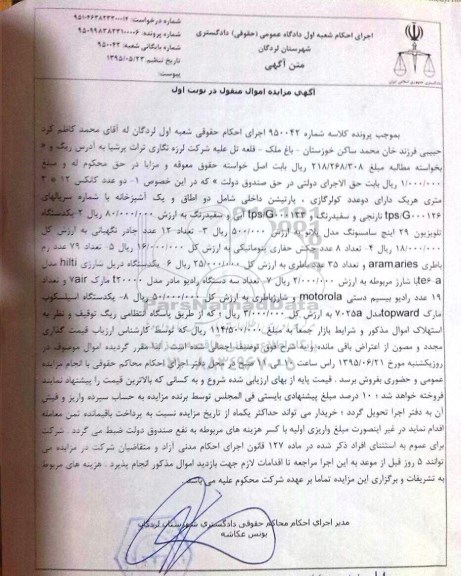 شماره درخواست: ۹۵۱۰۴۶۳۸۲۳۳۰۰۰۱۴
اجرای احکام شعبه اول دادگاه عمومی (حقوقی) دادگستری
شماره پرونده: ۹۵۰۹۹۸۳۸۲۳۱۰۰۰۰۶
شهرستان لردگان
شماره بایگانی شعبه: ۹۵۰۰۴۲
متن آگهی
تاریخ تنظیم: ۱۳۹۵/۰۵/۲۳
پیوست:
آگهی مزایده اموال منقول در نوبت اول
بموجب پرونده کلاسه شماره ۹۵۰۰۴۲ اجرای احکام حقوقی شعبه اول لردگان له آقای محمد کاظم کرد
حبیبی فرزند خان محمد ساکن خوزستان - باغ ملک - قلعه تل علیه شرکت لرزه نگاری تراث پرشیا به آدرس رینگ و ۶
بخواسته مطالبه مبلغ ۲۱۸/۲۶۸/۳۰۸ ریال بابت اصل خواسته حقوق معوقه و مزایا در حق محکوم له و مبلغ
۱/۰۰۰/۰۰۰ ریال بابت حق الاجرای دولتی در حق صندوق دولت « که در این خصوص ۱- دو عدد کانکس ۱۲ * ۳
متری هریک دارای دوعدد کولرگازی ، پارتیشن داخلی شامل دو اطاق و یک آشپزخانه با شماره سریالهای
tps/G۰۰۰۱۲۶ نارنجی و سفیدرنگ و tps/G۰۰۰۱۳۳ آبی و سفیدرنگ به ارزش ۸۰/۰۰۰/۰۰۰ ریال ۲-یکدستگاه
تلویزیون ۲۹ اینچ سامسونگ مدل پلانو به ارزش ۵۰۰/۰۰۰ ریال ۳- تعداد ۱۲ عدد چادر نگهبانی به ارزش کل
۱۸/۰۰۰/۰۰۰ ریال ۴- تعداد ۸ عدد چکش حفاری پنوماتیکی به ارزش کل ۱۶/۰۰۰/۰۰۰ ریال ۵- تعداد ۷۹ عدد رم
باطری aram.aries و تعداد ۳۵ عدد باطری به ارزش کل ۲۵/۰۰۰/۰۰۰ ریال ۶- یکدستگاه دریل شارژی hilti مدل
te۶-a با شارژ مربوطه به ارزش ۲/۰۰۰/۰۰۰ ریال ۷- تعداد سه دستگاه رادیو مادر ۲۰۰۰۰ مارک vair و تعداد
۱۹ عدد رادیو بیسیم دستی motorola و شارژباطری به ارزش کل ۵۰/۰۰۰/۰۰۰ ریال ۸- یکدستگاه اسیلسکوپ
مارک topward مدل ۷۰۲۵a به ارزش کل ۳/۰۰۰/۰۰۰ ریال » که از طریق پاسگاه انتظامی رینگ توقیف و نظر به
استهلاک اموال مذکور و شرایط بازار جمعا به مبلغ ۱۱۴/۵۰۰/۰۰۰ ریال که توسط کارشناس ارزیاب قیمت گذاری
مجدد و مصون از اعتراض باقی مانده و به شرح فوق توصیف اجمالی شده است . لذا مقرر گردیده اموال موصوف در
روزیکشنبه مورخ ۱۳۹۵/۰۶/۲۱ راس ساعت ۱۰ الی ۱۱ صبح در محل دفتر اجرای احکام محاکم حقوقی با انجام مزایده
عمومی و حضوری بفروش برسد . قیمت پایه از بهای ارزیابی شده شروع و به کسانی که بالاترین قیمت را پیشنهاد نمایند
فروخته خواهد شد ؛ ۱۰ درصد مبلغ پیشنهادی بایستی فی المجلس توسط برنده مزایده به حساب سپرده واریز و فیش
آن به دفتر اجرا تحویل گردد ؛ خریدار می تواند حداکثر یکماه از تاریخ مزایده نسبت به پرداخت باقیمانده ثمن معامله
اقدام نماید در غیر اینصورت مبلغ واریزی اولیه با کسر هزینه های مربوطه به نفع صندوق دولت ضبط می گردد . شرکت
برای عموم به استثنای افراد ذکر شده در ماده ۱۲۷ قانون اجرای احکام مدنی آزاد و متقاضیان شرکت در مزایده می
توانند ۵ روز قبل از موعد به این اجرا مراجعه تا اقدامات لازم جهت بازدید اموال مذکور انجام پذیرد . هزینه های مربوط
به تشریفات و برگزاری این مزایده تماما بر عهده شرکت محکوم علیه می باشد
مدیر اجرای احکام محاکم حقوقی دادگستری شهرستان لردگان
یونس عکاشه